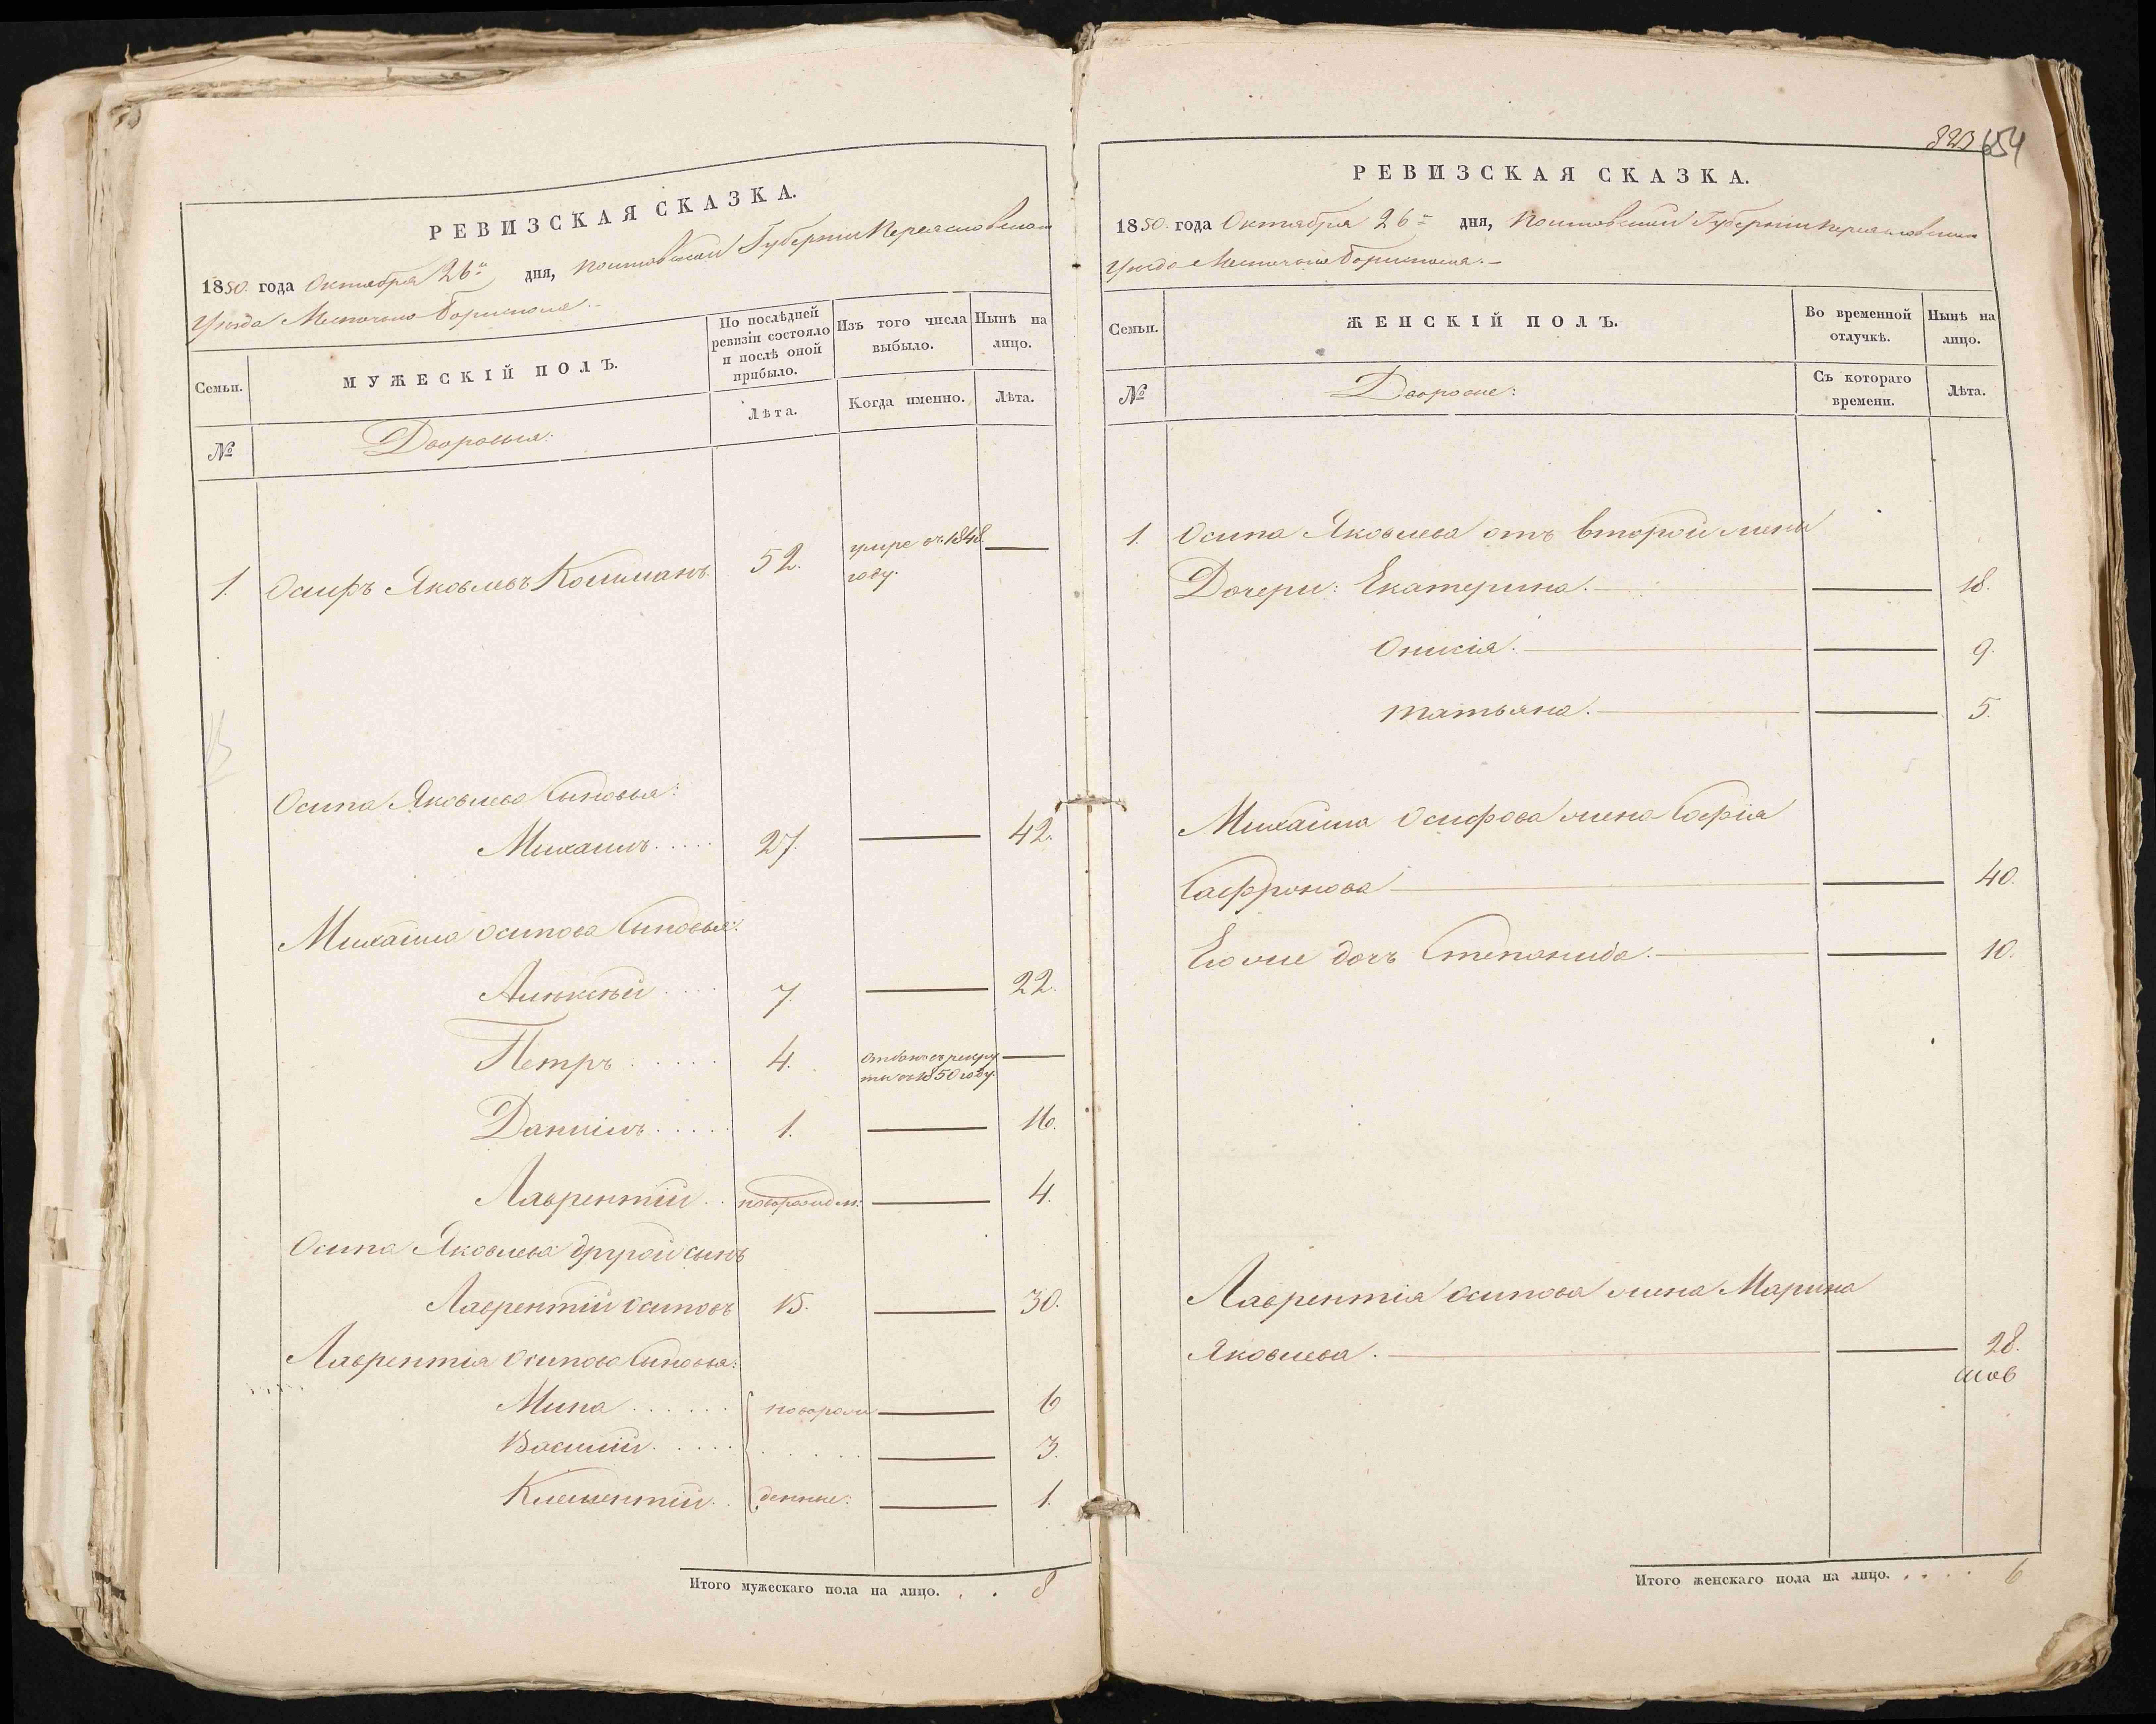 РЕВИЗСКАЯ СКАЗКА.
1850. года Октября 26го дня, Полтавской Губернии Переяславскаго
Уезда Местечка Борисполя.-
Семьи.
МУЖЕСКІЙ ПОЛЪ.
По послѣдней ревизіи состояло и послѣ оной прибыло.
Изъ того числа выбыло.
Нынѣ на лицо.
№
Дворовые:
Лѣта.
Когда именно.
Лѣта.
1. Осифъ Яковлевъ Кошманъ. 52. умре въ 1848
году.
Осипа Яковлева Сыновья:
Михаилъ..... 27. 42.
Михаила Осипова Сыновья:
Алѣксѣй.... 7. 22.
Петръ...... 4. отданъ въ рекру
ты въ 1850 году.
Даніилъ..... 1. 16.
Лаврентій.. новорожден: 4.
Осипа Яковлева другой сынъ
Лаврентій Осиповъ 15. 30.
Лаврентія Осипова Сыновья:
Мина...... новорож 6
Василій..... 3.
Клементій.. денные: 1.
Итого мужескаго пола на лицо... 8
654
РЕВИЗСКАЯ СКАЗКА.
1850. года Октября 26го дня, Полтавской Губернии Переяславскаго
Уезда Местечка Борисполя.-
Семьи.
ЖЕНСКІЙ ПОЛЪ.
Во временной отлучкѣ.
Нынѣ на лицо.
№
Дворовые:
Съ котораго времени.
Лѣта.
1. Осипа Яковлева отъ второй жены
Дочери: Екатерина. 18.
Оникія. 9.
Татьяна. 5.
Михаила Осифова жена Софія
Сафронова 40.
Его же дочь Степанида. 10.
Лаврентія Осипова жена Марина
Яковлева. 28.
Итого женскаго пола на лицо..... 6